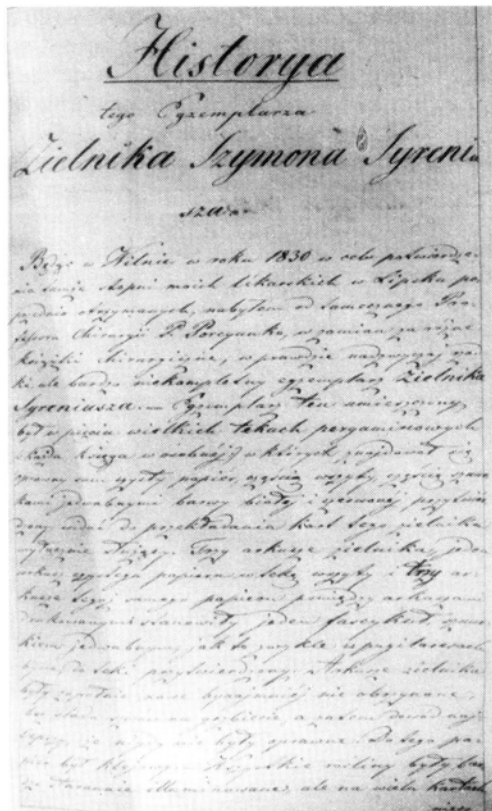 Historya
tego Egzemplarza
Zielnika Szymona Syreni
sza.
Będąc w Wilnie w roku 1830 w celu potwierdze
nia tamże stopni moich lekarskich w Lipsku po
przednio otrzymanych, nabyłem od tamecznego Pro
fessora Chirurgii P. Porcyanko, w zamian za różne
książki chirurgiczne, w prawdzie nadzwyczaj rzad
ki, ale bardzo niekompletny egzemplarz Zielnika
Syreniusza. Egzemplarz ten umieszczony
był w pięciu wielkich tekach pergaminowych
każda księga w osobnej w których znajdował się
czysty papier, częścią wszyty, częścią
kami jedwabnymi barwy białej i czerwonej
do przekładania kart tego zielnika
wyłącznie służący. Trzy arkusze zielnika, jeden
arkusz czystego papieru w tekę wszyty i trzy ar
kusze tegoż samego papieru pomiędzy arkuszami
drukowanemi stanowiły jeden fascykuł
jedwabnym, jak to zwykle w pugilaresach
bywa, do teki przytwierdzony. Arkusze zielnika
były zupełnie nowe bynajmniej nie obrzynane,
bez śladu na grzbiecie, a zatem dowód naj
lepszy, że nigdy nie były oprawne. Do tego pa
pier był klejony. Wszystkie rośliny były bar
dzo starannie illuminowane, ale na wielu kartach